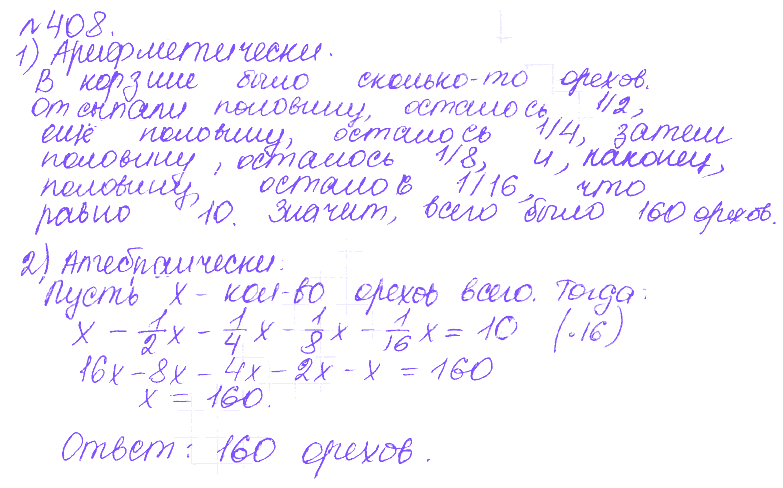 №408.
1) Арифметически.
В корзине было сколько-то орехов.
Отсыпали половину, осталось 1/2,
ещё половину, осталось 1/4, затем
половину, осталось 1/8, и, наконец,
половину, осталов 1/16, что
равно 10. Значит, всего было 160 орехов.
2) Алгебраически.
Пусть x - кол-во орехов всего. Тогда:
x - 1/2 x - 1/4 x - 1/8 x - 1/16 x = 10 (·16)
16x - 8x - 4x - 2x - x = 160
x = 160.
Ответ: 160 орехов.